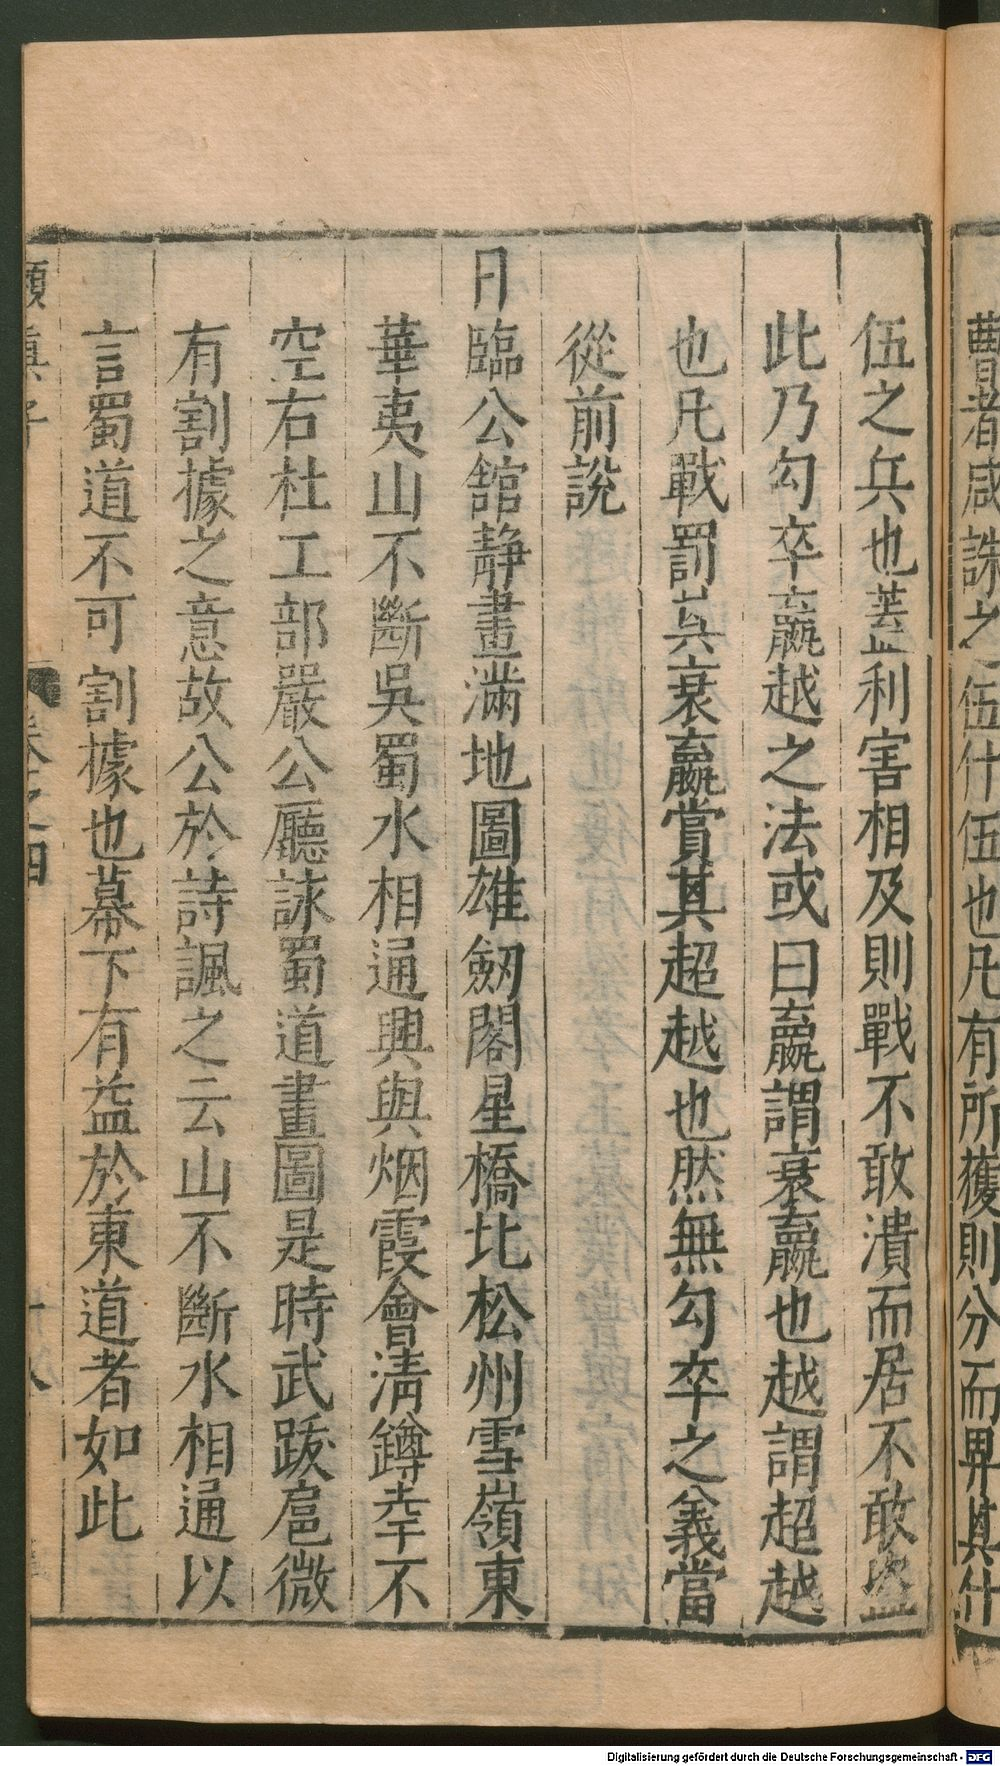 曹者咸誅之伍什伍也凡有所獲則分而畀其什
伍之兵也蓋利害相及則戰不敢潰而居不敢盜
此乃勾卒嬴越之法或曰嬴謂衰嬴也越謂超越
也凡戰罰其衰嬴賞其超越也然無勾卒之義當
從前說
日臨公舘靜畫滿地圖雄劒閣星橋北松州雪嶺東
華夷山不斷吳蜀水相通興與烟霞會清罇幸不
空右杜工部嚴公廳詠蜀道畫圖是時武跋扈微
有割據之意故公於詩諷之云山不斷水相通以
言蜀道不可割據也幕下有益於東道者如此
卷之四
Digitalisierung gefördert durch die Deutsche Forschungsgemeinschaft - DFG